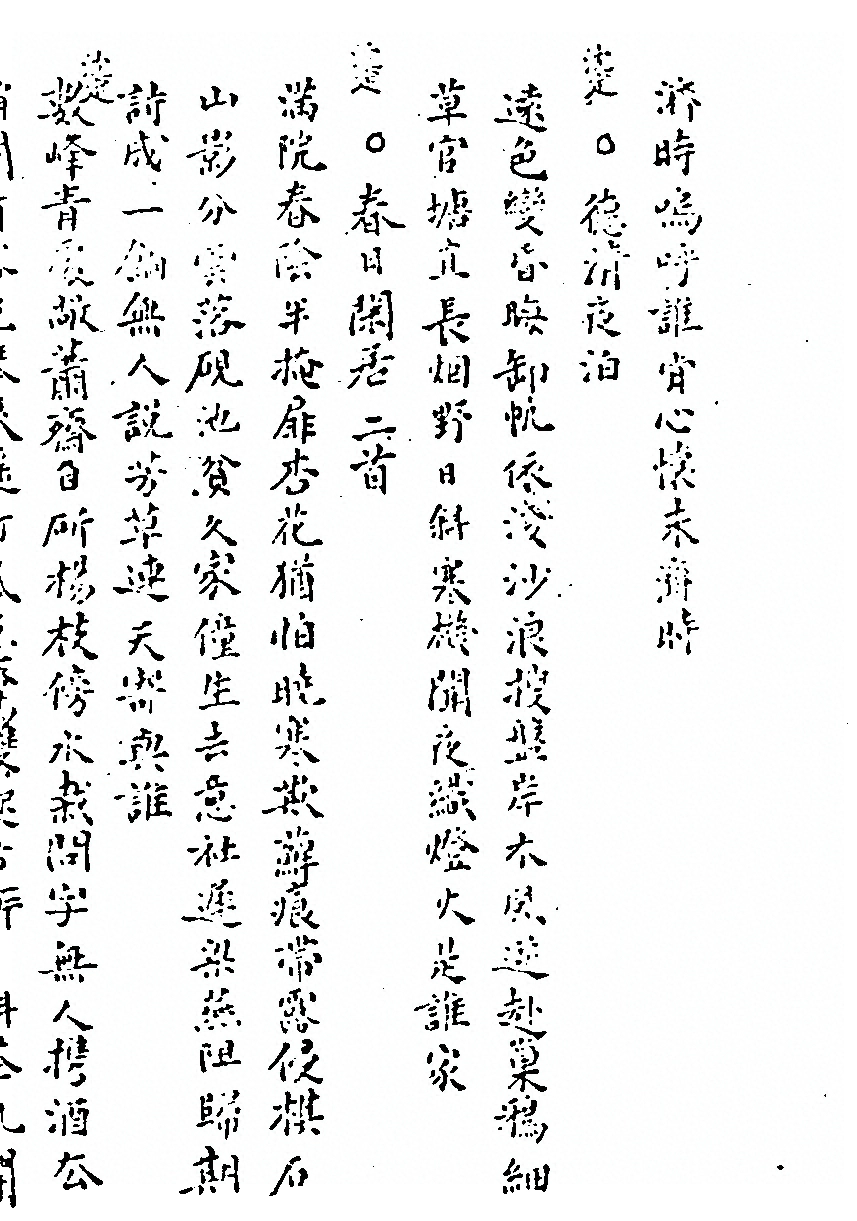 濟時嗚呼誰肯心懷未濟時
○德清夜泊
遠色變昏暝卸帆依淺沙浪搜盤岸木風逆赴巢鴉細
草官塘直長烟野日斜寒機開夜織燈火是誰家
○春日閑居二首
滿院春陰半掩扉杏花猶怕曉寒欺蘚痕帶露侵棋石
山影分雲落硯池貧久家僮生去意社遲梁燕阻歸期
詩成一餉無人說芳草連天寄與誰
數峰青處敞蕭齋自斫楊枝傍水栽問字無人携酒去